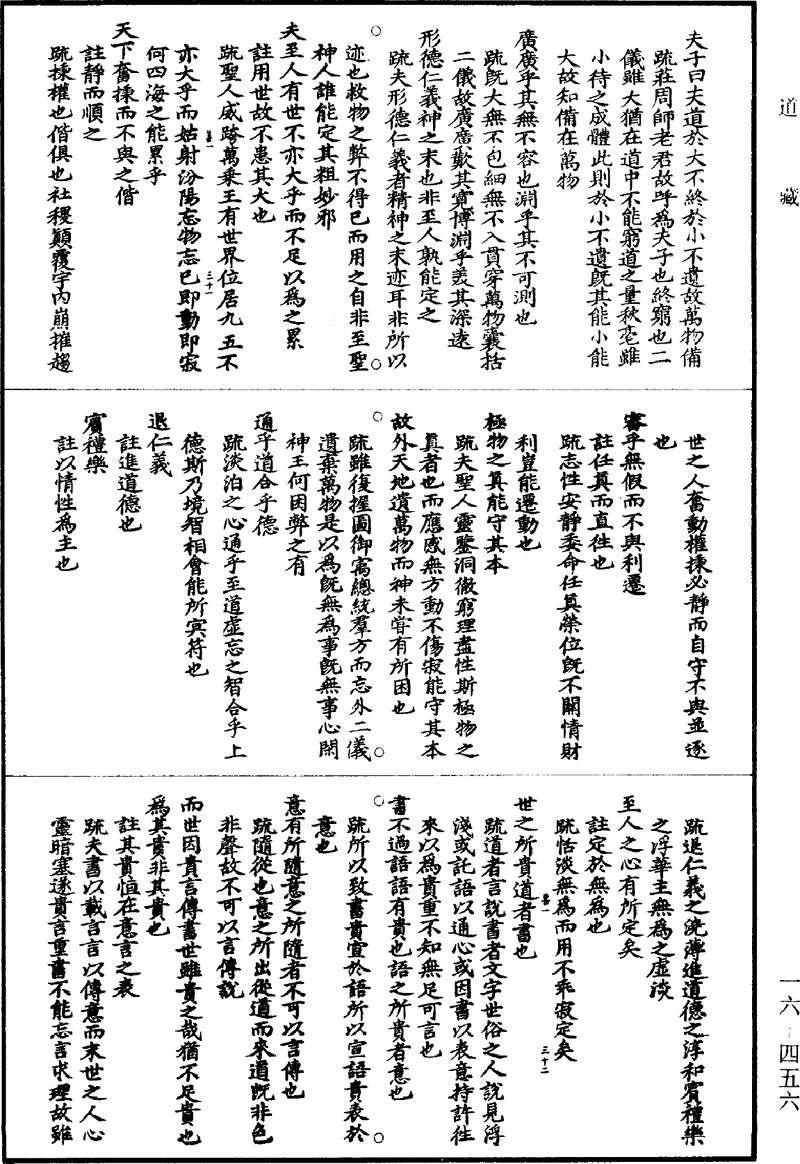 道藏
夫子曰夫道於大不終於小不遺故萬物備
疏莊周師老君故呼為夫子也終窮也二
儀雖大猶在道中不能窮道之量秋毫雖
小待之成體此則於小不遺既其能小能
大故知備在萬物
廣廣乎其無不容也淵乎其不可測也
疏既大無不包細無不入貫穿萬物囊括
二儀故廣廣歎其寬博淵乎羙其深遠
形德仁義神之末也非至人孰能定之
疏夫形德仁義者精神之末迹耳非所以
迹也救物之弊不得已而用之自非至聖
神人誰能定其粗妙邪
夫至人有世不亦大乎而不足以為之累
註用世故不患其大也
疏聖人威跨萬乘王有世界位居九五不
亦大乎而姑射汾陽忘物忘已即動即寂
何四海之能累乎
天下奮揀而不與之偕
註靜而順之
疏揀權也偕俱也社稷顛覆宇內崩摧趨
世之人奮動權揀必靜而自守不與並逐
也
審乎無假而不與利遷
註任真而直徃也
疏志性安靜委命任真榮位既不關情財
利豈能遷動也
極物之真能守其本
疏夫聖人靈鑒洞徹窮理盡性斯極物之
真者也而應感無方動不傷寂能守其本
故外天地遺萬物而神未甞有所困也
疏雖復握圖御㝢總統羣方而忘外二儀
遺棄萬物是以為既無為事既無事心閑
神王何困弊之有
通乎道合乎德
疏淡泊之心通乎至道虛忘之智合乎上
德斯乃境智相會能所冥符也
退仁義
註進道德也
賓禮樂
註以情性為主也
疏退仁義之澆薄進道德之淳和賓禮樂
之浮華主無為之虛淡
至人之心有所定矣
註定於無為也
疏恬淡無為而用不乖寂定矣
世之所貴道者書也
疏道者言說書者文字世俗之人說見浮
淺或託語以通心或因書以表意持許往
來以為貴重不知無足可言也
書不過語語有貴也語之所貴者意也
疏所以致書貴宣於語所以宣語貴表於
意也
意有所隨意之所隨者不可以言傳也
疏隨從也意之所出從道而來道既非色
非聲故不可以言傳說
而世因貴言傳書世雖貴之哉猶不足貴也
為其貴非其貴也
註其貴恒在意言之表
疏夫書以載言言以傳意而末世之人心
靈暗塞遂貴言重書不能忘言求理故雖
一六-四五六